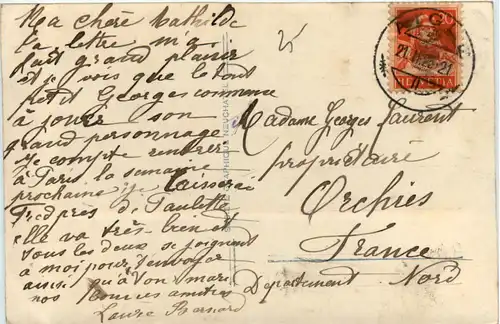 Ma chère Mathilde
Ta lettre m'a
fait grand plaisir
et je vois que le tout
petit Georges commence
à jouer son
grand personnage
Je compte rentrer
à Paris la semaine
prochaine je laisserai
Fred près d Paulette
elle va très bien et
tous les deux se joignent
à moi pour t'envoyer
ainsi qu'à ton mari
nos bonnes amitiés
Laure
25
20
HELVETIA
Madame Georges Laurent
propriétaire
Orchies
France
Département Nord